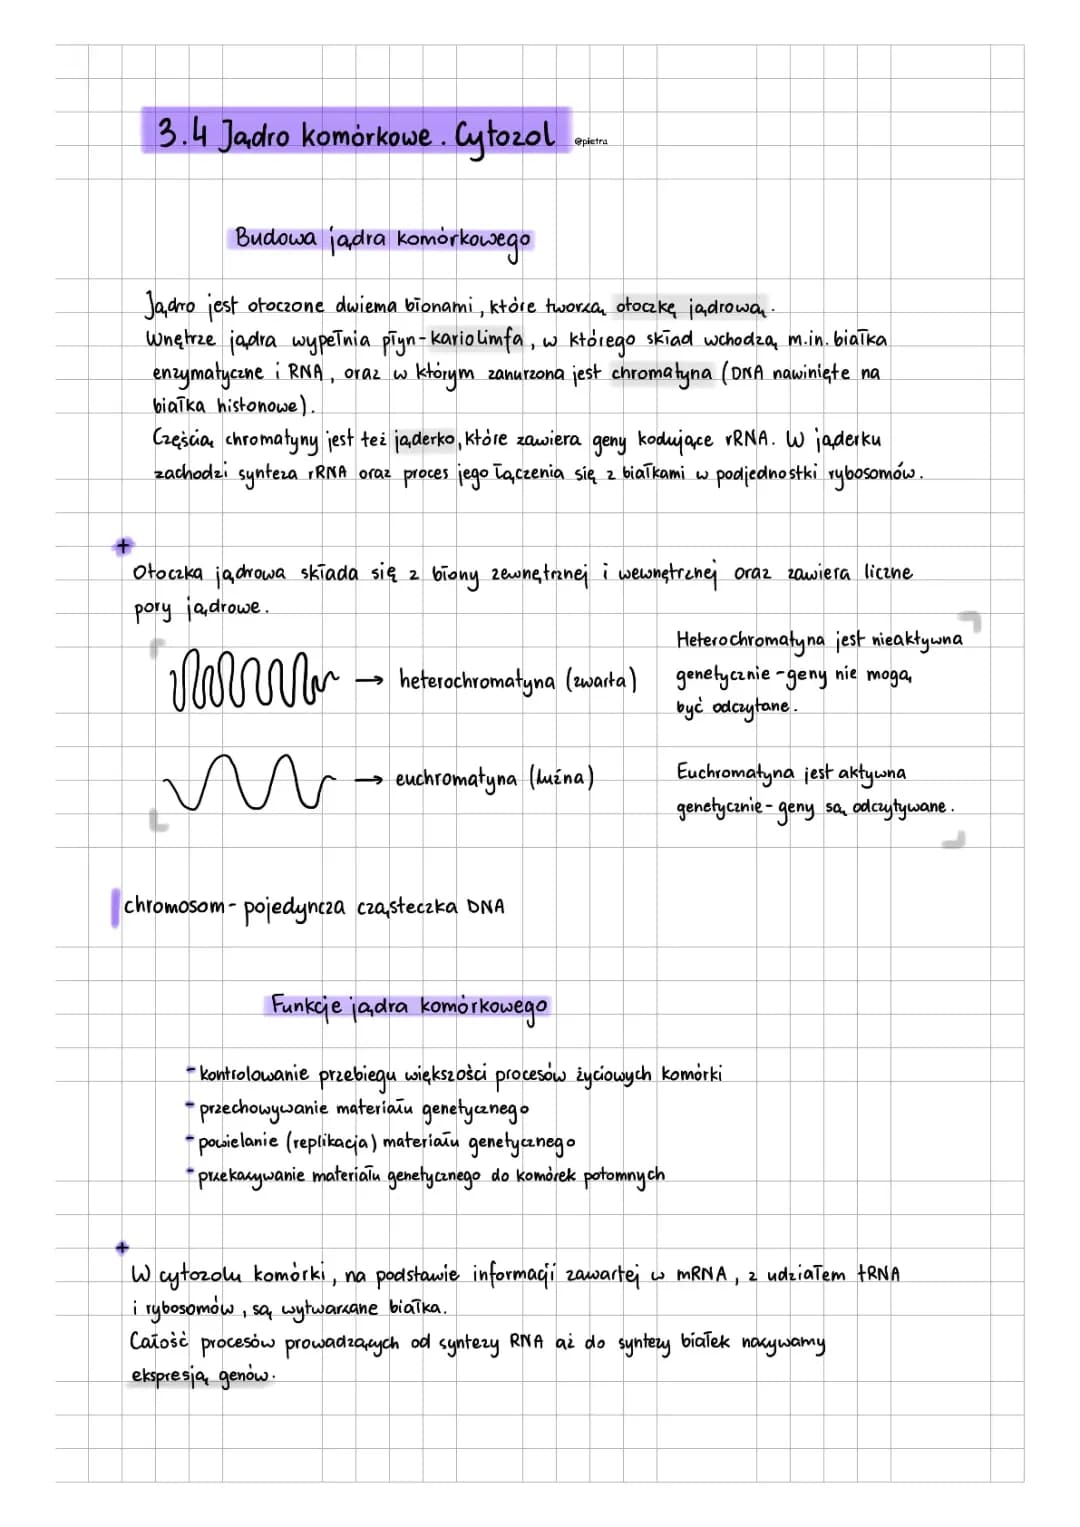 3.4 Jądro komórkowe. Cytozol @pietra
Budowa jądra komórkowego
Jądro jest otoczone dwiema błonami, które tworzą otoczkę jądrową.
Wnętrze jądra wypełnia płyn-kariolimfa, w którego skład wchodzą m.in. białka
enzymatyczne i RNA, oraz w którym zanurzona jest chromatyna (DNA nawinięte na
białka histonowe).
Częścią chromatyny jest też jąderko, które zawiera geny kodujące rRNA. W jąderku
zachodzi synteza rRNA oraz proces jego łączenia się z białkami w podjednostki rybosomów.
+
Otoczka jądrowa składa się z błony zewnętrznej i wewnętrznej oraz zawiera liczne
pory jądrowe.
→ heterochromatyna (zwarta)
Heterochromatyna jest nieaktywna
genetycznie-geny nie mogą
być odczytane.
→ euchromatyna (luźna)
Euchromatyna jest aktywna
genetycznie-geny są odczytywane.
chromosom-pojedyncza cząsteczka DNA
Funkcje jądra komórkowego
-kontrolowanie przebiegu większości procesów życiowych komórki
-przechowywanie materiału genetycznego
-powielanie (replikacja) materiału genetycznego
-przekazywanie materiału genetycznego do komórek potomnych
+
W cytozolu komórki, na podstawie informacji zawartej w mRNA, z udziałem tRNA
i rybosomów, są wytwarzane białka.
Całość procesów prowadzących od syntezy RNA aż do syntezy białek nazywamy
ekspresją genów.